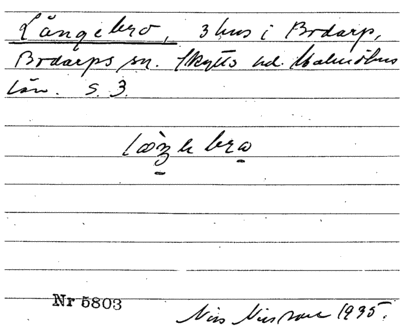 Långebro, 3 hus i Bodarp,
Bodarps sn. Skytts hd. Malmöhus
län. S. 3.
Nr 5803
Nils Nilsson 1935.